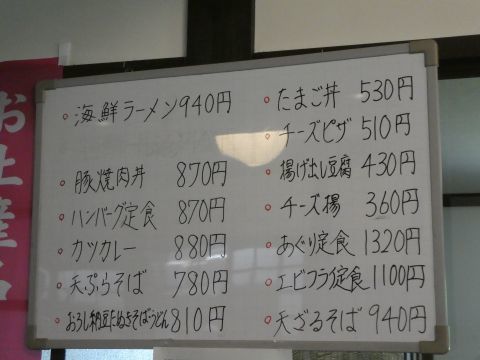 海鮮ラーメン 940円
豚焼肉丼 870円
ハンバーグ定食 870円
カツカレー 880円
天ぷらそば 780円
おろし納豆たぬきそばうどん 810円
たまご丼 530円
チーズピザ 510円
揚げ出し豆腐 430円
チーズ揚 360円
あぐり定食 1320円
エビフライ定食 1100円
天ざるそば 940円
お土産